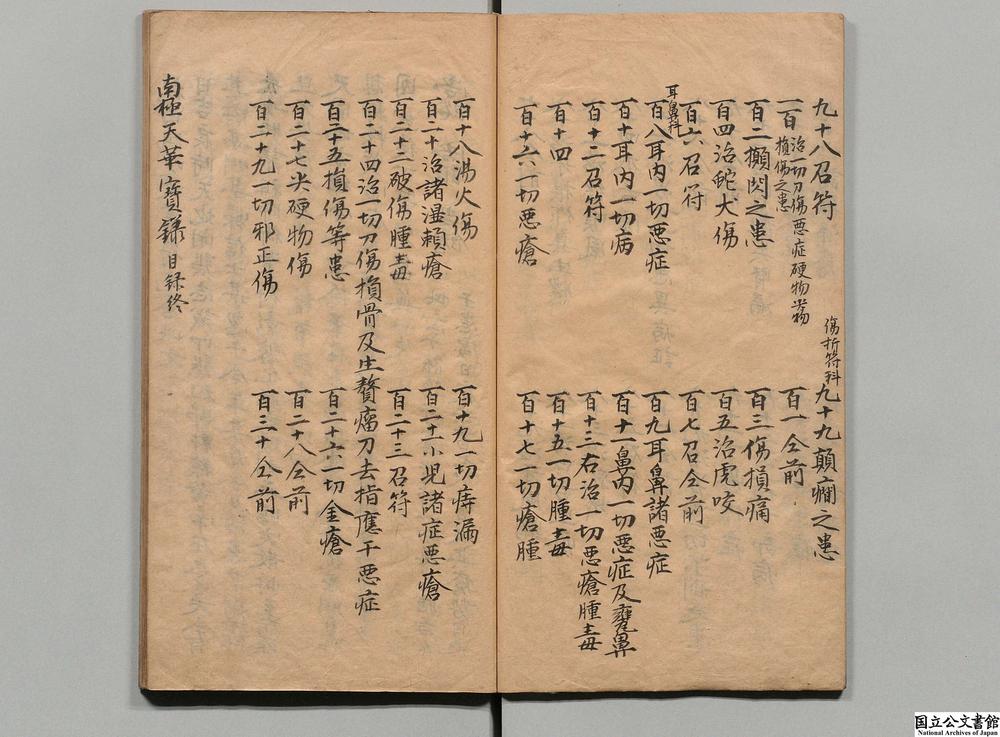 九十八召符
九十九顛癇之患
一百治一切刀傷悪症硬物尖物損傷之患
傷折符科
百一仝前
百二攧閃之患
百三傷損痛
百四治蛇犬傷
百五治虎咬
百六召符
百七召仝前
耳鼻科
百八耳内一切悪症
百九耳鼻諸悪症
百十耳内一切病
百十一鼻内一切悪症及齆鼻
百十二召符
百十三右治一切悪瘡腫毒
百十四
百十五一切腫毒
百十六一切悪瘡
百十七一切瘡腫
百十八湯火傷
百十九一切痔漏
百二十治諸濕頼瘡
百二十一小児諸症悪瘡
百二十二破傷腫毒
百二十三召符
百二十四治一切刀傷損骨及生贅瘤刀去指應干悪症
百二十五損傷等患
百二十六一切金瘡
百二十七尖硬物傷
百二十八仝前
百二十九一切邪正傷
百三十仝前
南極天華寶籙目録終
国立公文書館
National Archives of Japan